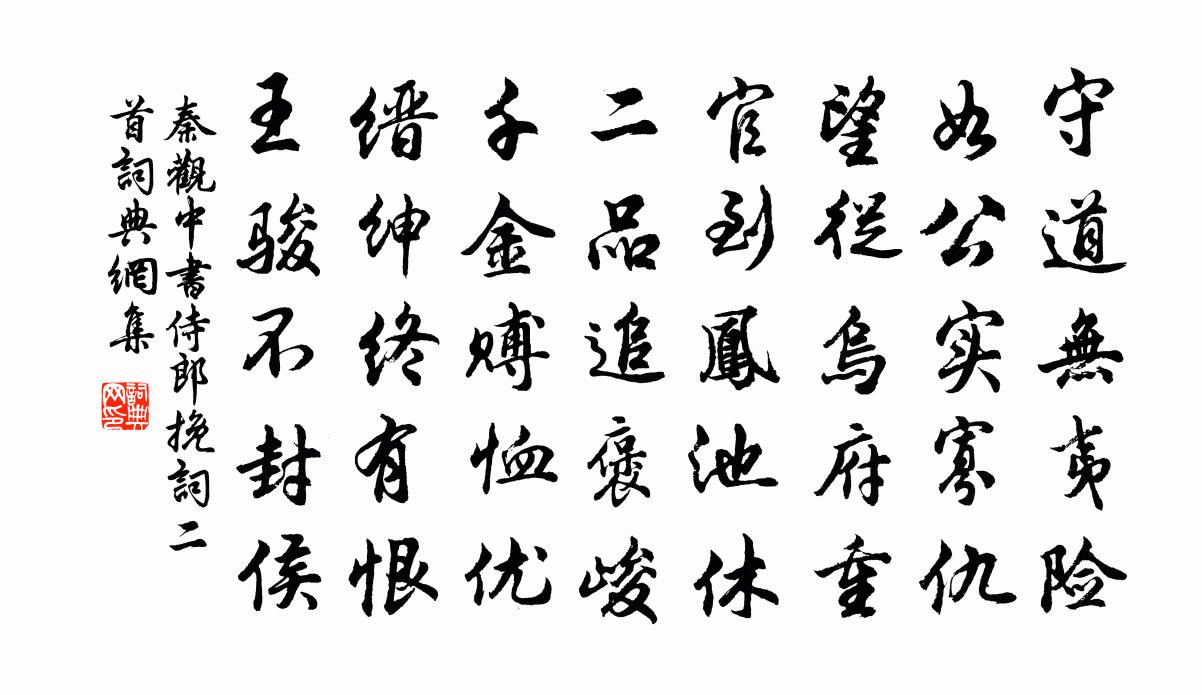 守道無夷险
如公实寡仇
望從烏府重
官到鳳池休
二品追褒峻
千金赙恤优
缙绅终有恨
王骏不封侯
秦觀中書侍郎挽詞二
首詞典網集
詞典
网印